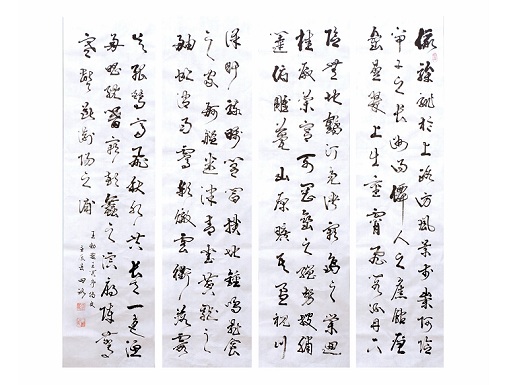 儼驂騑於上路訪風景於崇阿臨
帝子之長洲得僊人之舊館層
巒聳翠上出重霄飛閣流丹下
臨無地鶴汀鳧渚窮島嶼之縈迴
桂殿蘭宮即岡巒之體勢披繡
闥俯雕甍山原曠其盈視川
澤駭矚閭閻撲地鐘鳴鼎食
之家舸艦迷津青雀黃龍之
舳虹銷雨霽彩徹雲衢落霞
與孤鶩齊飛秋水共長天一色漁
舟唱晚響窮彭蠡之濱雁陣驚
寒聲斷衡陽之浦
王勃滕王閣序摘文